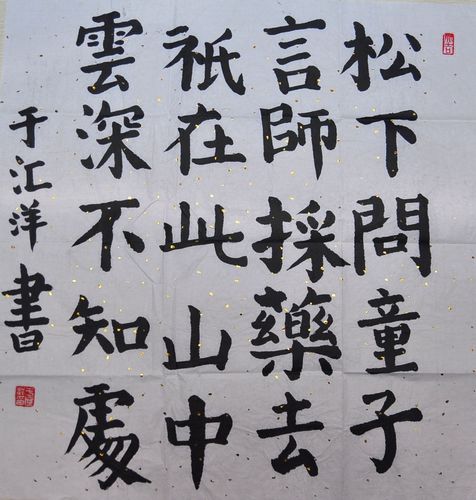 松下問童子
言師採藥去
祇在此山中
雲深不知處
于汇洋書